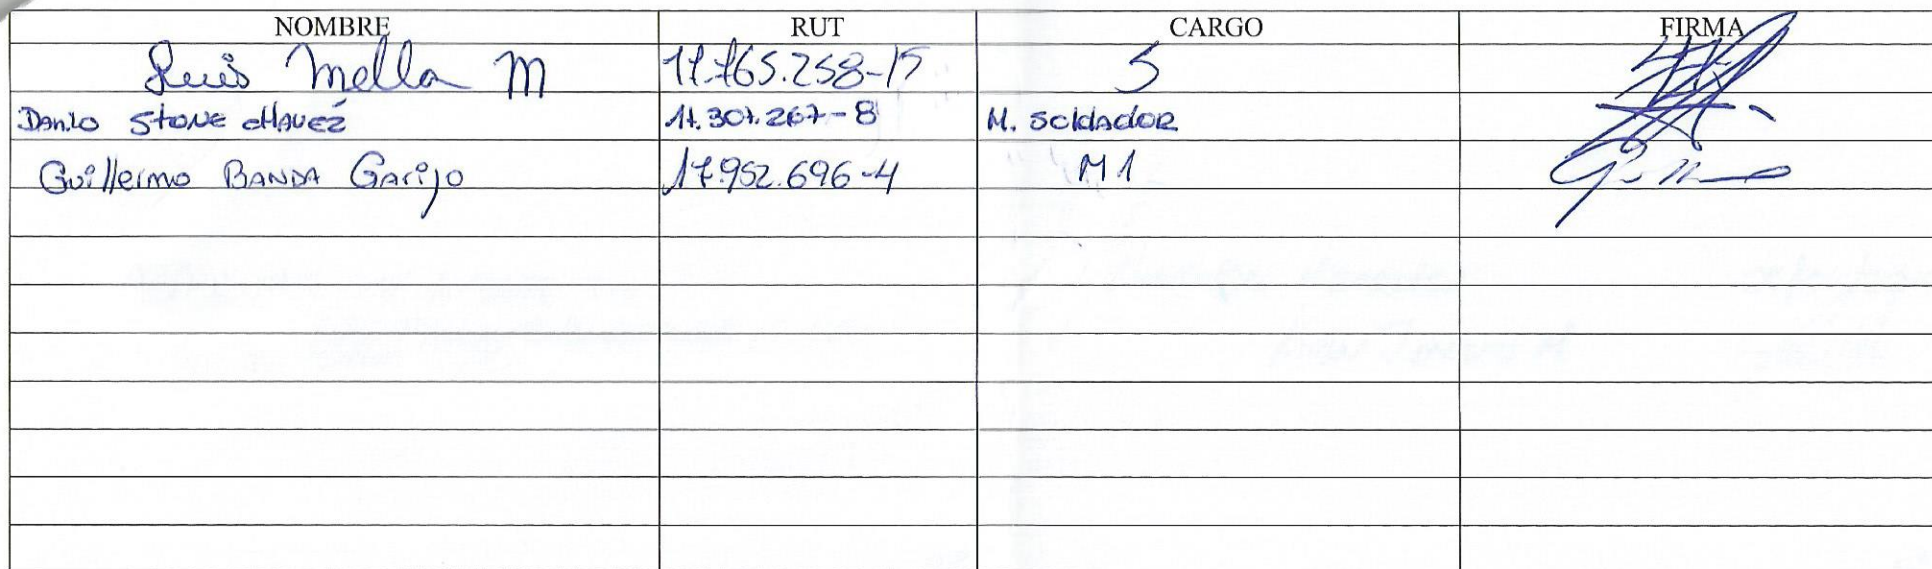 NOMBRE RUT CARGO FIRMA
Luis Mella M 17.765.258-15 S
Danilo Stone chavez 17.307.267-8 M. Soldador
Guillermo Banda Garijo 17.952.696-4 M1